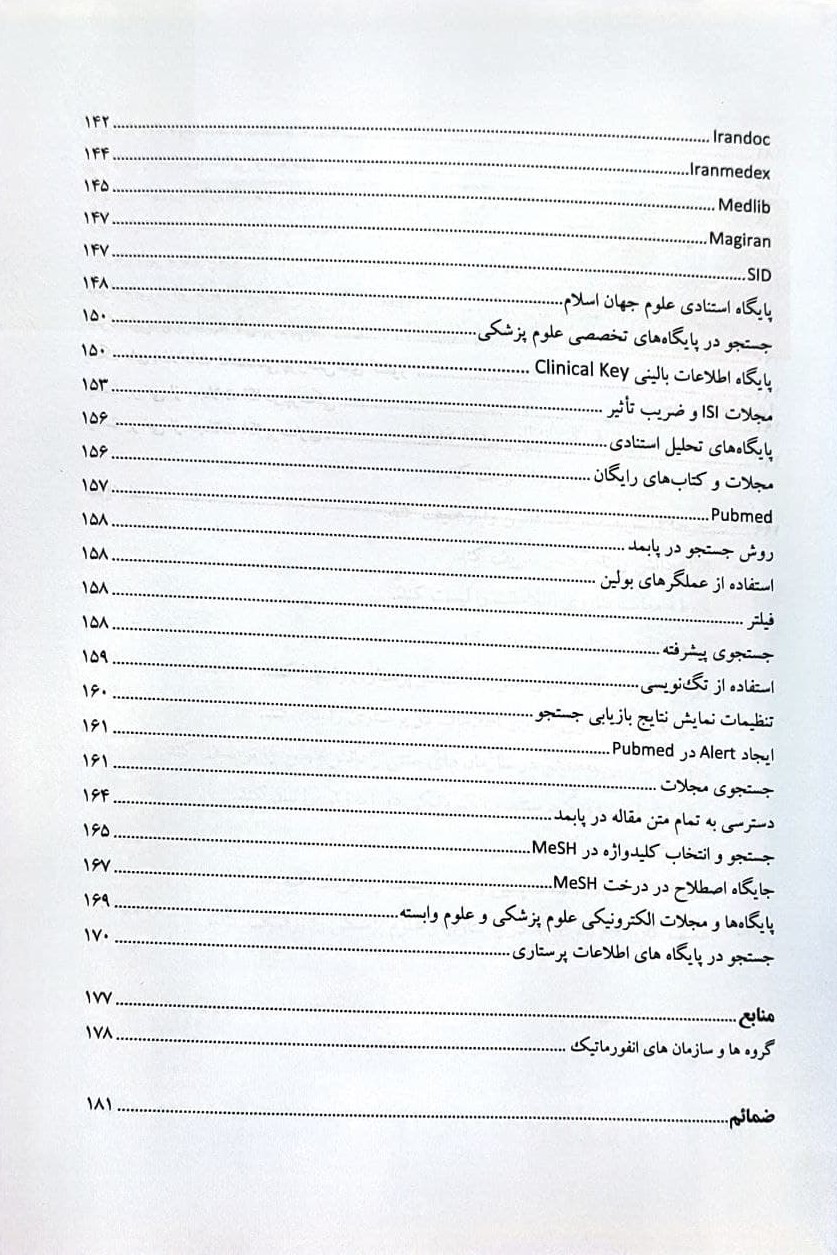 Irandoc ........ ۱۴۲
Iranmedex ........ ۱۴۴
Medlib ........ ۱۴۵
Magiran ........ ۱۴۷
SID ........ ۱۴۷
پایگاه استنادی علوم جهان اسلام ........ ۱۴۸
جستجو در پایگاه‌های تخصصی علوم پزشکی ........ ۱۵۰
پایگاه اطلاعات بالینی Clinical Key ........ ۱۵۰
مجلات ISI و ضریب تأثیر ........ ۱۵۳
پایگاه‌های تحلیل استنادی ........ ۱۵۶
مجلات و کتاب‌های رایگان ........ ۱۵۶
Pubmed ........ ۱۵۷
روش جستجو در پابمد ........ ۱۵۸
استفاده از عملگرهای بولین ........ ۱۵۸
فیلتر ........ ۱۵۸
جستجوی پیشرفته ........ ۱۵۸
استفاده از تگ‌نویسی ........ ۱۵۹
تنظیمات نمایش نتایج بازیابی جستجو ........ ۱۶۰
ایجاد Alert در Pubmed ........ ۱۶۱
جستجوی مجلات ........ ۱۶۱
دسترسی به تمام متن مقاله در پابمد ........ ۱۶۴
جستجو و انتخاب کلیدواژه در MeSH ........ ۱۶۵
جایگاه اصطلاح در درخت MeSH ........ ۱۶۷
پایگاه‌ها و مجلات الکترونیکی علوم پزشکی و علوم وابسته ........ ۱۶۹
جستجو در پایگاه های اطلاعات پرستاری ........ ۱۷۰
منابع ........ ۱۷۷
گروه ها و سازمان های انفورماتیک ........ ۱۷۸
ضمائم ........ ۱۸۱